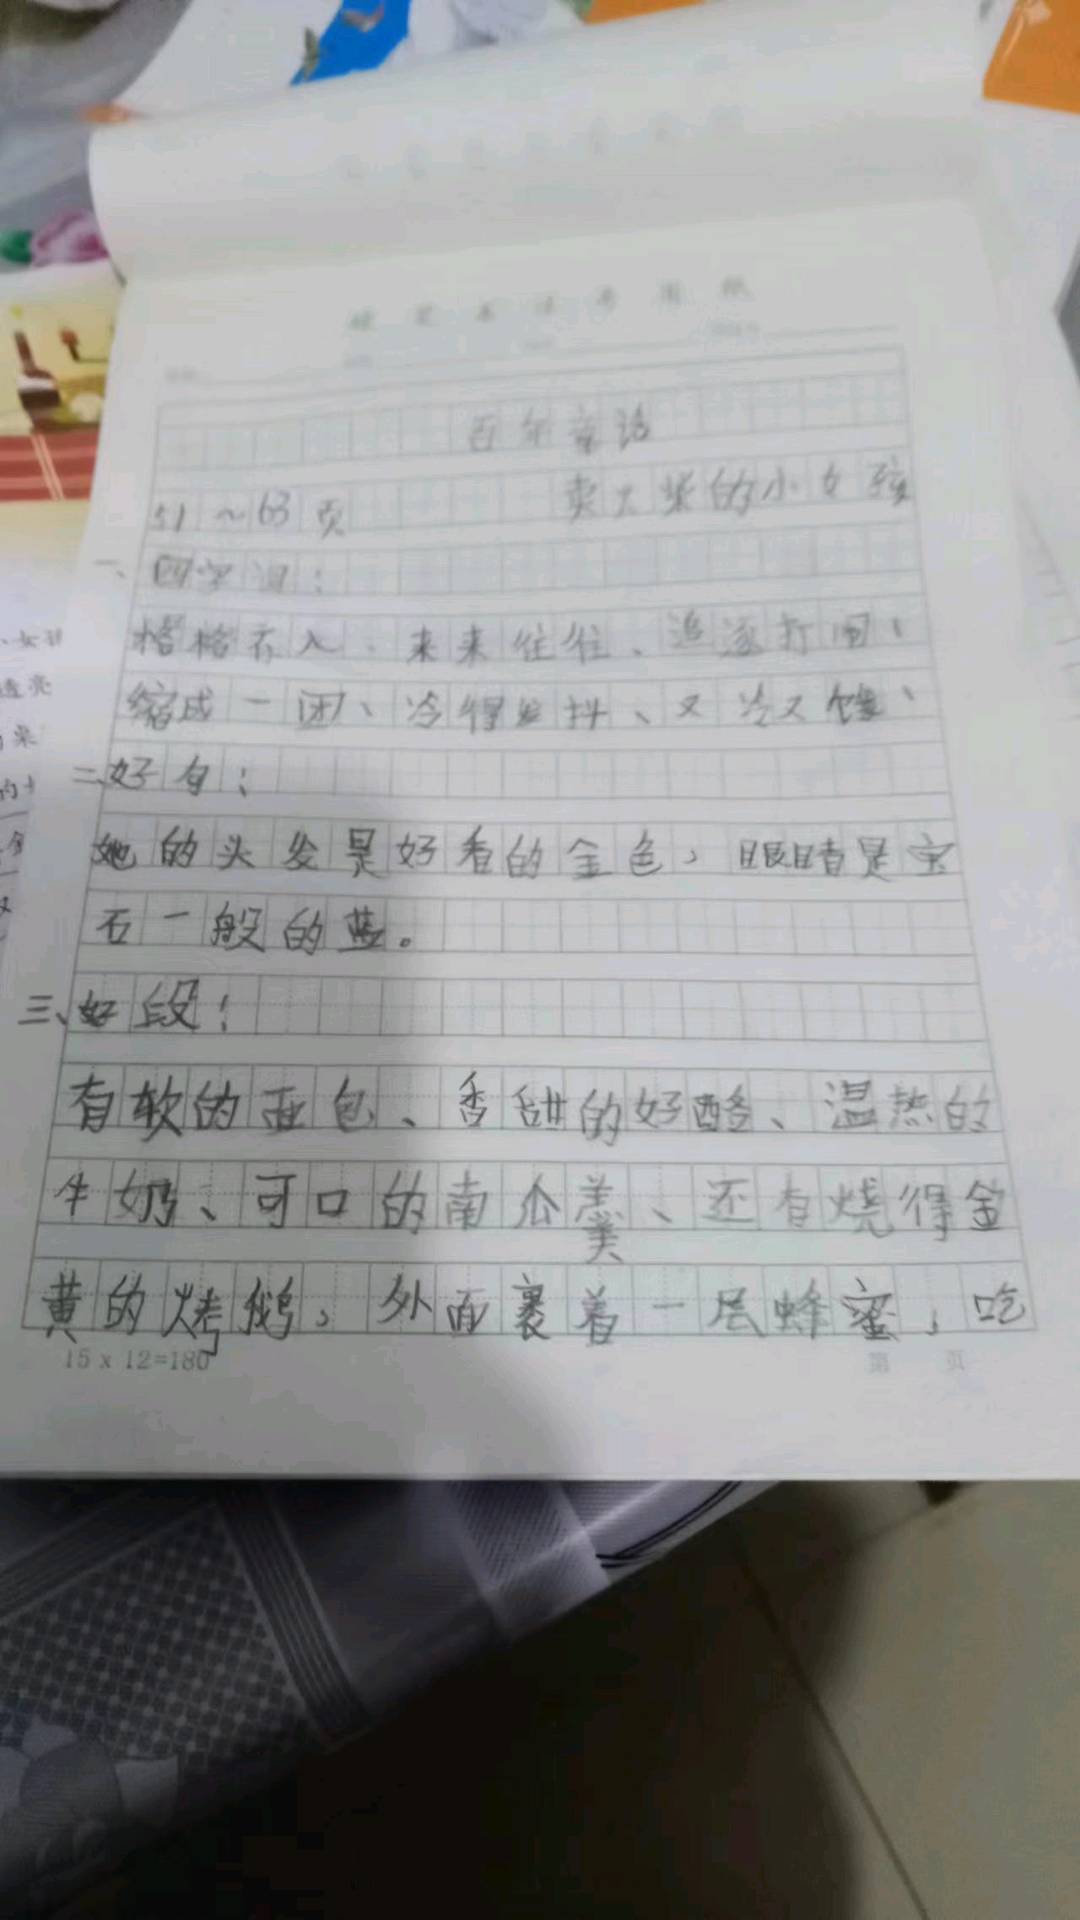 百年童话
51～63页 卖火柴的小女孩
一、四字词：
格格不入、来来往往、追逐打闹、
缩成一团、冷得发抖、又冷又饿、
二、好句：
她的头发是好看的金色，眼睛是宝
石一般的蓝。
三、好段：
有软的面包、香甜的奶酪、温热的
牛奶、可口的南瓜羹、还有烧得金
黄的烤鹅，外面裹着一层蜂蜜，吃
15 x 12=180 第 页